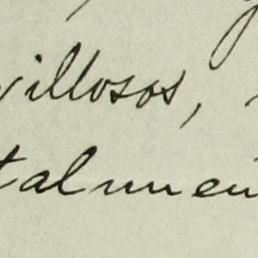 villosos,
talmen